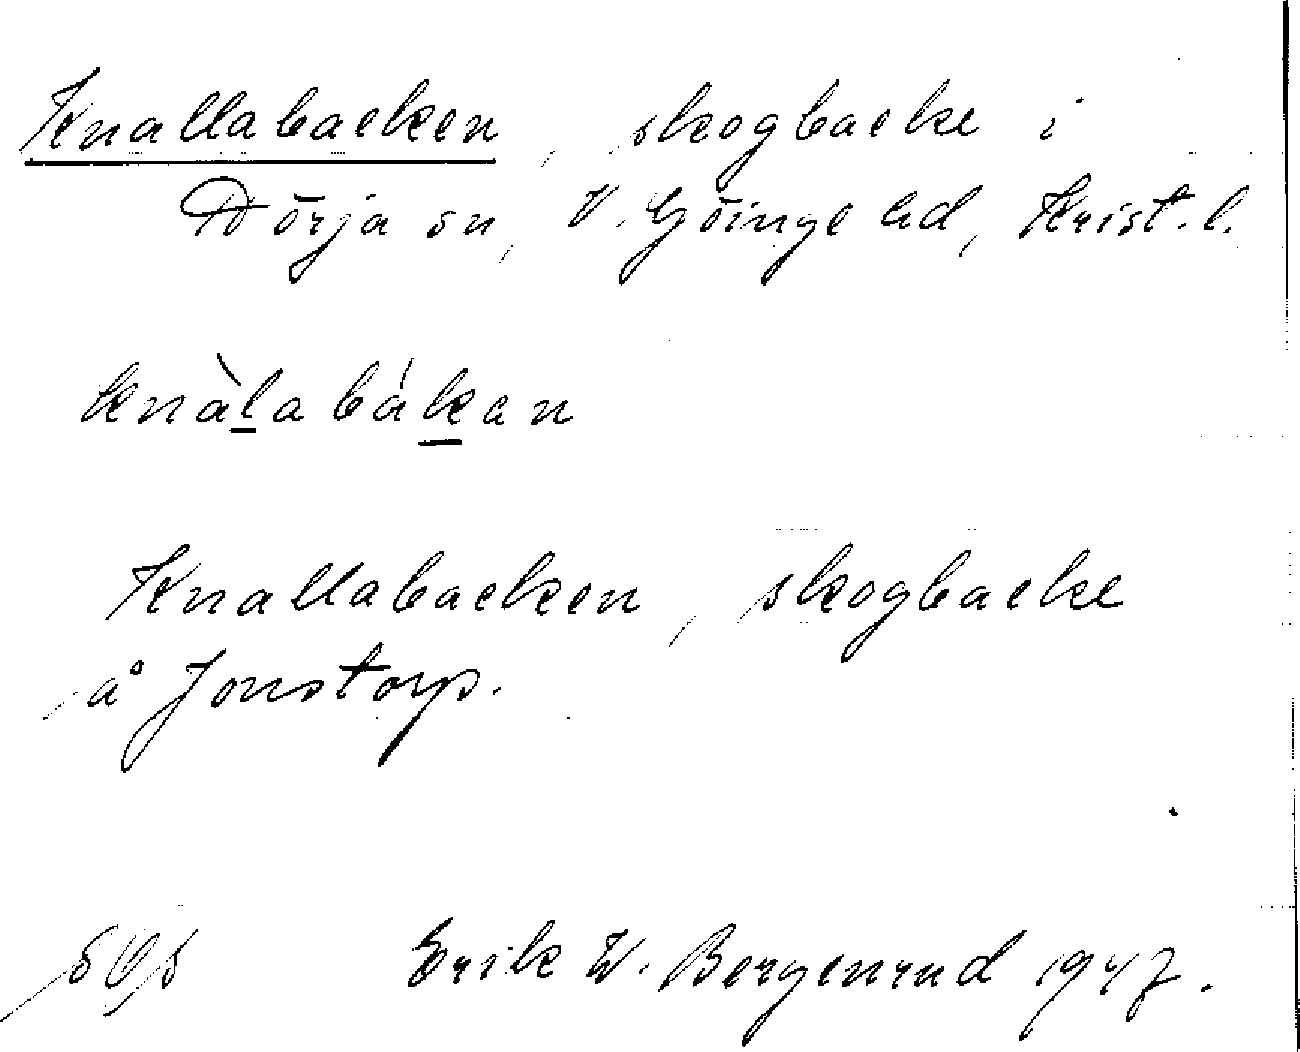 Knallabacken, skogbacke i
Hörja sn, V. Göinge hd, Krist. l.
knàl̲abák̲an
Knallabacken, skogbacke
å Jonstorp.
Erik W. Bergenrud 1947.